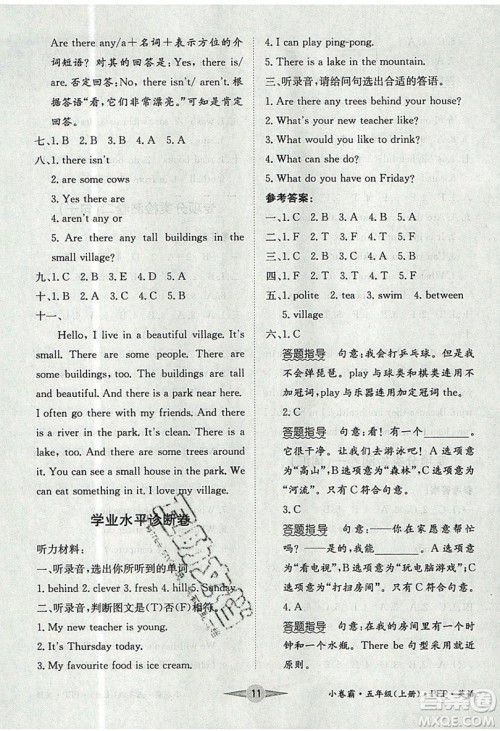 Are there any/a+名词+表示方位的介
词短语? 对其的回答是: Yes, there
are. 否定回答: No, there aren't. 根
据答语“看,它们非常漂亮。”可知是肯定
回答。
七、1. B 2. B 3. B 4. A 5. A
八、1. there isn't
2. are some cows
3. Yes there are
4. aren't any or
5. Are there any tall buildings in the
small village?
九、1. C 2. B 3. D 4. A
十、1. B 2. A 3. A 4. A 5. A
十一、
Hello, I live in a beautiful village. It's
small. There are some people. There are
many houses. There are buildings are tall
and beautiful. And there is a park near here.
I often go there with my friends. And there
is a river in the park. It's clean. There is a
lake, too. And there are some trees around
it. There are small houses in the park. We
can eat something in it. I love my village.
学业水平诊断卷
听力材料:
一、听录音,选出你所听到的单词。
1. behind 2. clever 3. fresh 4. hill 5. Sunday
二、听录音,判断图文是(T)否(F)相符。
1. My new teacher is young.
2. It's Thursday today.
3. My favourite food is ice cream.
4. I can play ping-pong.
5. There is a lake in the mountain.
三、听录音,请给问句选出合适的答语。
1. Are there any trees behind your house?
2. What's your new teacher like?
3. What would you like to drink?
4. What can you do?
5. What do you have on Friday?
参考答案:
一、1. C 2. B 3. B 4. A 5. C
二、1. F 2. T 3. F 4. T 5. T
三、1. B 2. A 3. A 4. B 5. C
四、1. F 2. F 3. F 4. T
五、1. polite 2. tea 3. swim 4. between
5. village
六、1. C
答题指导 句意:我会打乒乓球。我
不会弹琵琶。play 与球类和棋类连用不
加冠词。play 与乐器连用加定冠词 the。
2. C
答题指导 句意:看!有一个______。
它很干净。让我们去游泳吧! A 选项意
为“高山”,B 选项意为“森林”,C 选项意为
“河流”。只有 C 选项符合题意。
3. C
答题指导 句意:你在家愿意帮忙吗?
——是的,我能______。A 选项意为
“看电视”,B 选项意为“玩电脑游戏”,C
选项意为“打扫房间”。只有 C 选项符合
题意。
4. A
答题指导 句意:在书桌上有一台电
脑和一个水瓶。There be 句型采用就
近原则。
11
小卷霸·五年级(上册)·PEP·英语